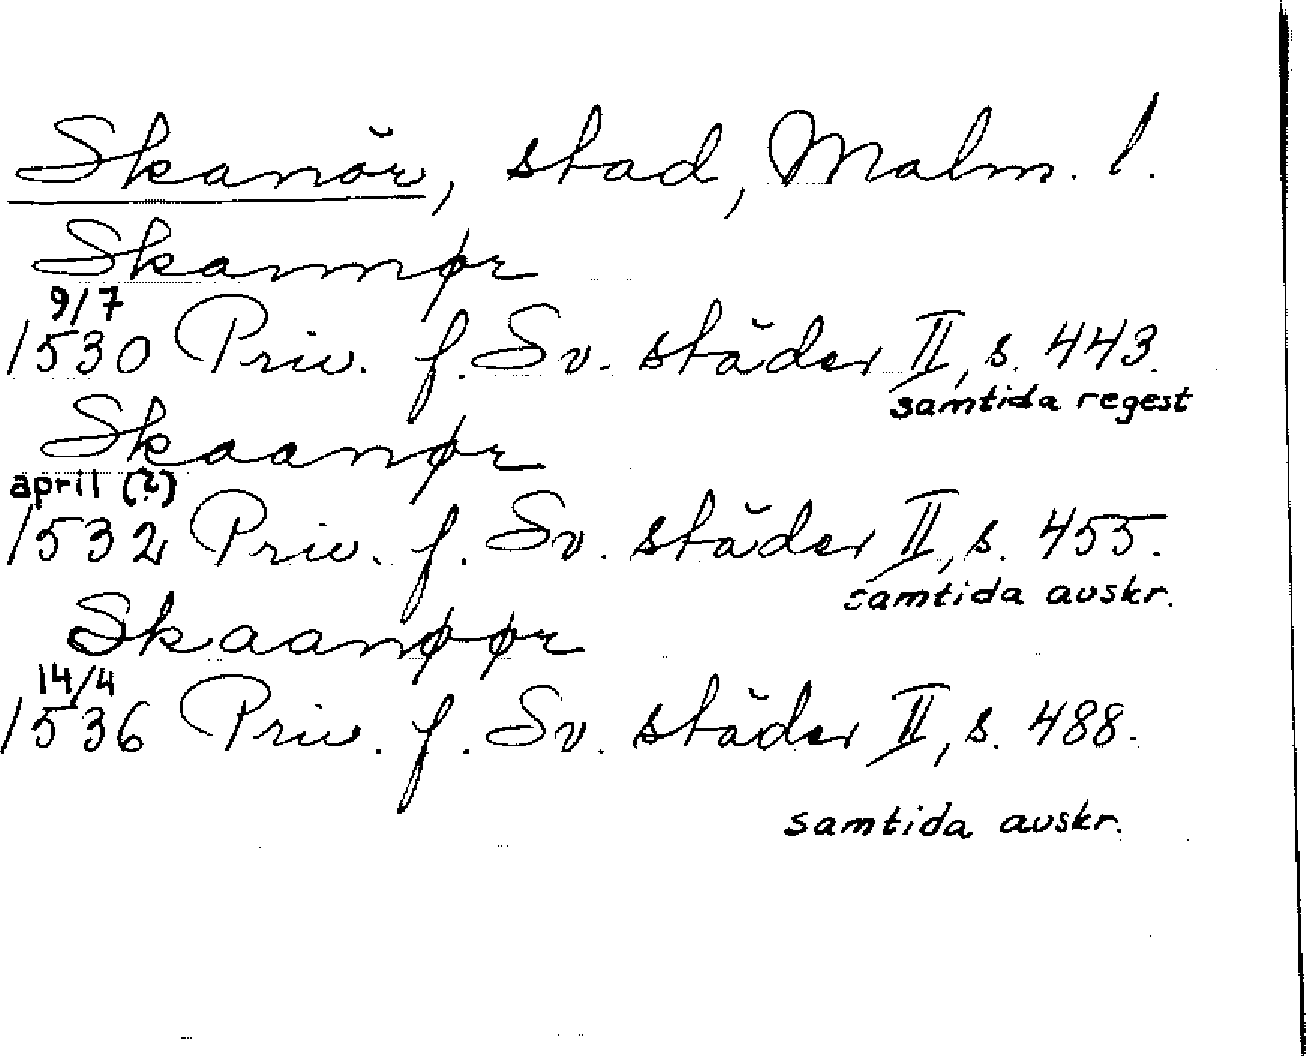 Skanör, stad, Malm. l.
Skannør
9/7
1530 Priv. f. Sv. städer II, s. 443.
samtida regest
Skaanør
april (?)
1532 Priv. f. Sv. städer II, s. 455.
samtida avskr.
Skaanøør
14/4
1536 Priv. f. Sv. städer II, s. 488.
samtida avskr.